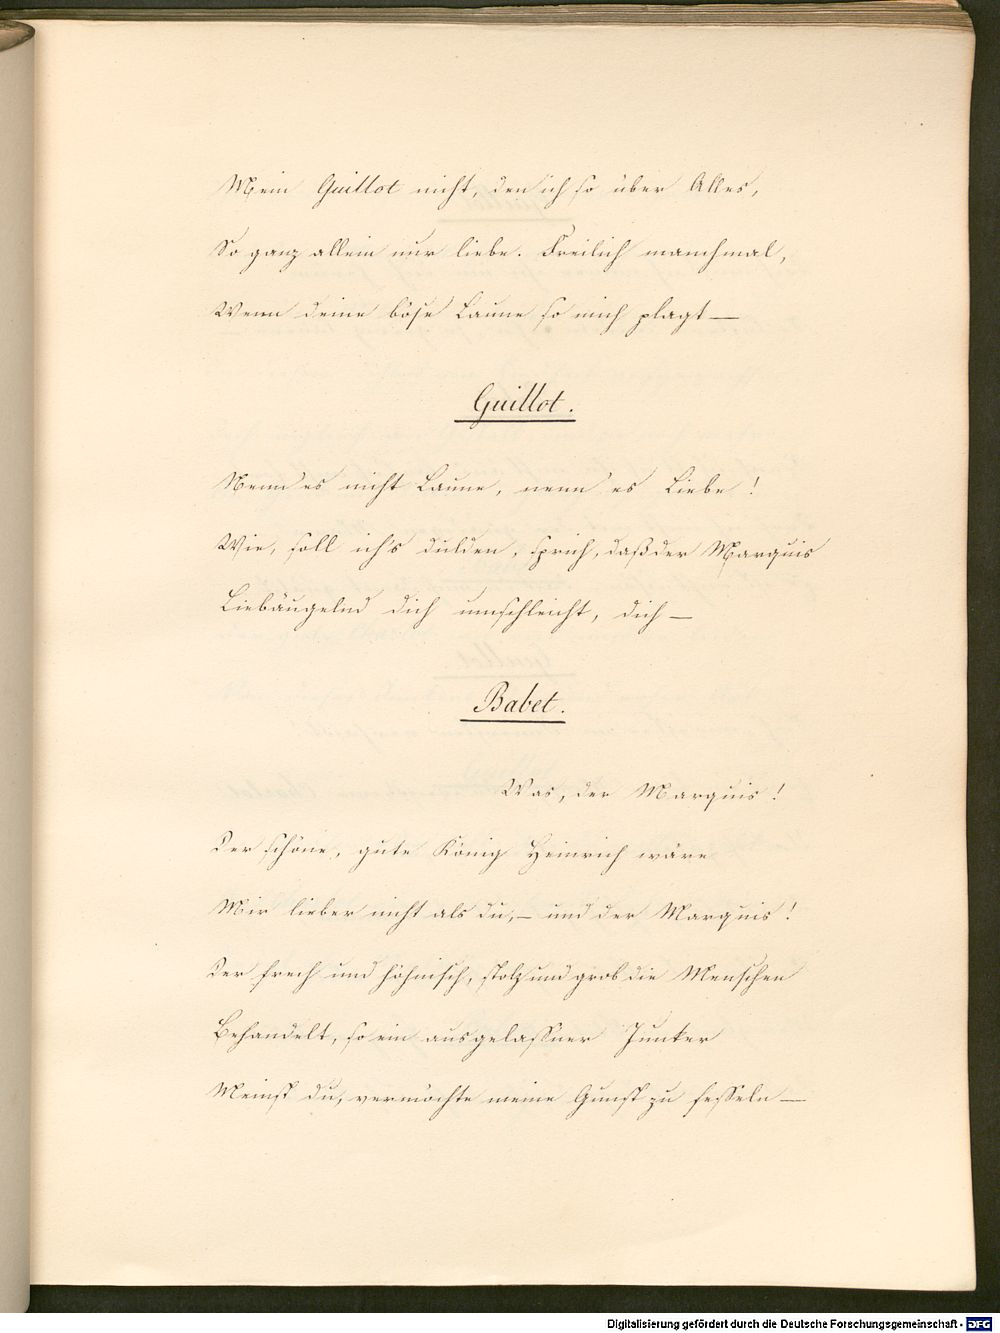 Mein Guillot nicht, den ich so über Alles,
So ganz allein nur liebe. Freilich manchmal,
Wenn deine böse Laune so mich plagt —
Guillot.
Nenn' es nicht Laune, nenn' es Liebe!
Wie, soll ich's dulden, sprich, daß der Marquis
Liebäugelnd dich umschleicht, dich —
Babet.
Was, der Marquis!
Der schöne, gute König Heinrich wäre
Mir lieber nicht als du, — und der Marquis!
Der frech und höhnisch, stolz und grob die Menschen
Behandelt, so ein ausgelassner Junker
Meinst du, vermöchte meine Gunst zu fesseln —
Digitalisierung gefördert durch die Deutsche Forschungsgemeinschaft - DFG